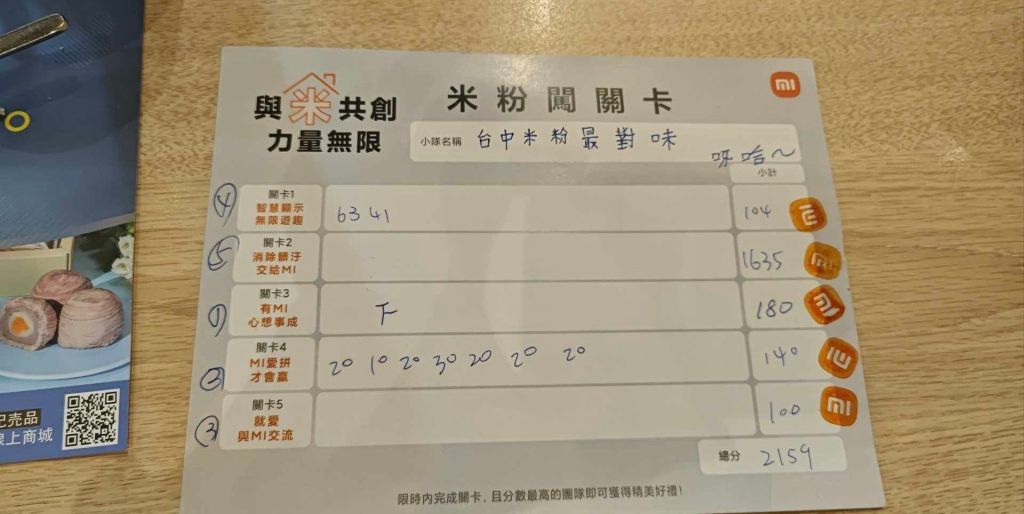 與米共創
力量無限
米粉闖關卡
小隊名稱 台中米粉最對味
呀哈～
小計
④ 關卡1
智慧顯示
無限遊趣
6341
104
⑤ 關卡2
消除髒汙
交給MI
1635
① 關卡3
有MI
心想事成
下
180
② 關卡4
MI愛拼
才會贏
20 10 20 30 20 20 20
140
③ 關卡5
就愛
與MI交流
100
總分 2159
限時內完成關卡，且分數最高的團隊即可獲得精美好禮！
記売品
線上商城